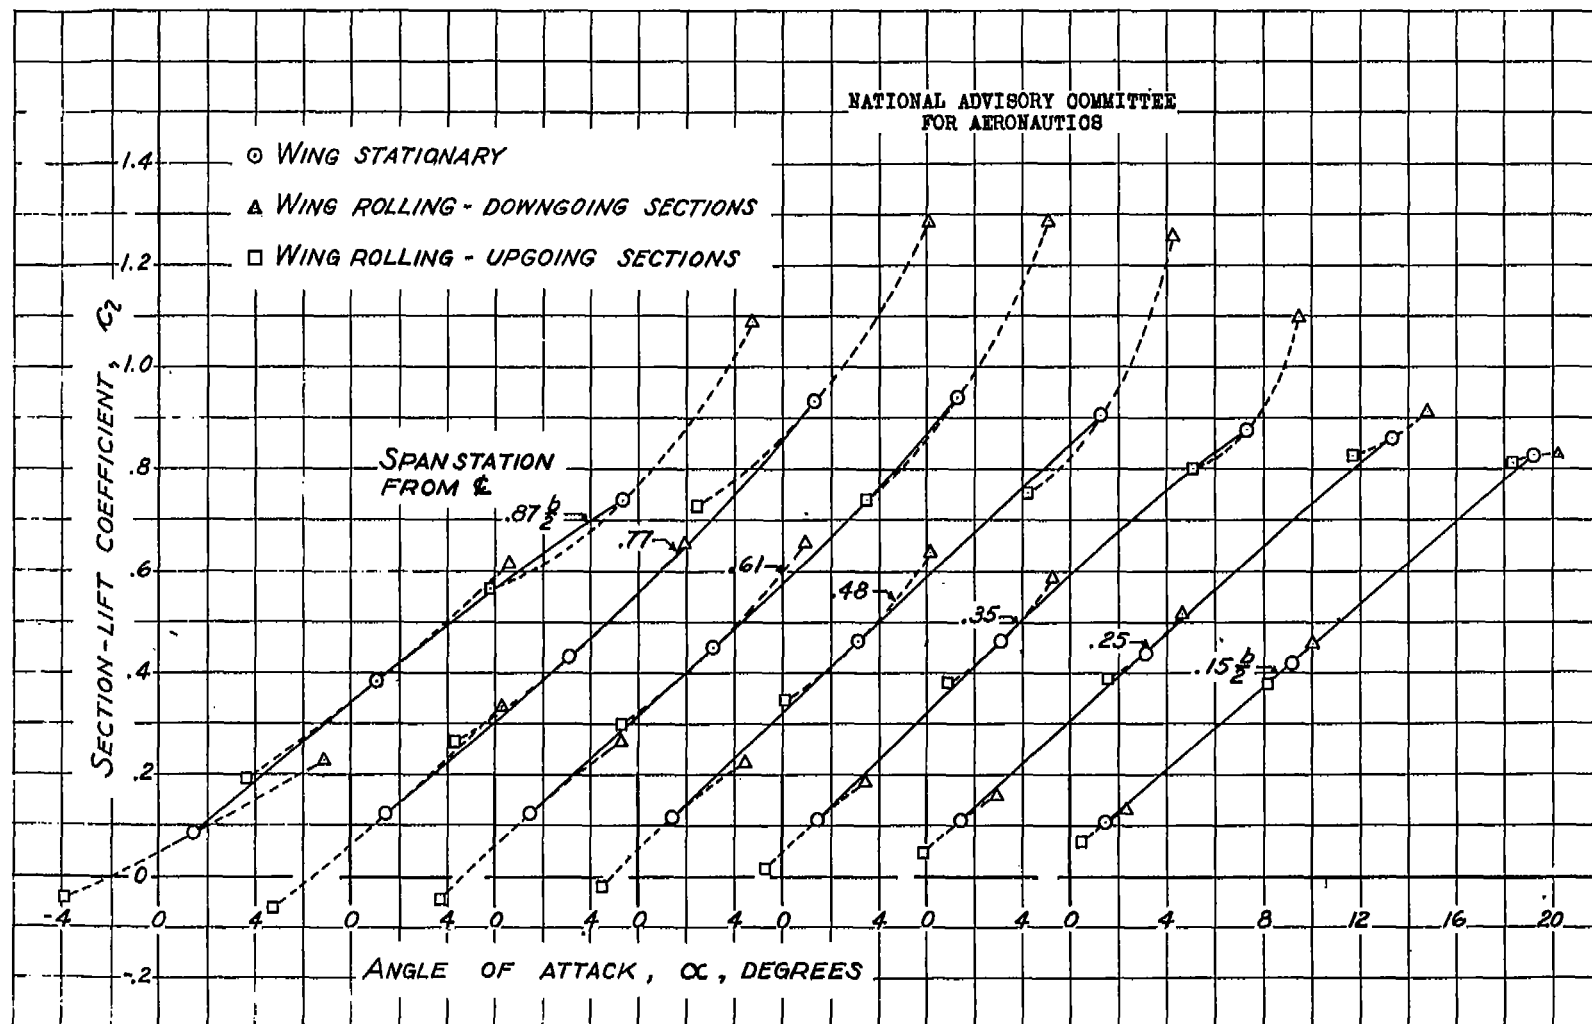 NATIONAL ADVISORY COMMITTEE
FOR AERONAUTICS
WING STATIONARY
WING ROLLING - DOWNGOING SECTIONS
WING ROLLING - UPGOING SECTIONS
SECTION-LIFT COEFFICIENT, c_l
1.4
1.2
1.0
.8
.6
.4
.2
0
-.2
SPAN STATION
FROM ℄
.87 b/2
.77
.61
.48
.35
.25
.15 b/2
-4 0 4 0 4 0 4 0 4 0 4 0 4 0 4 8 12 16 20
ANGLE OF ATTACK, α, DEGREES